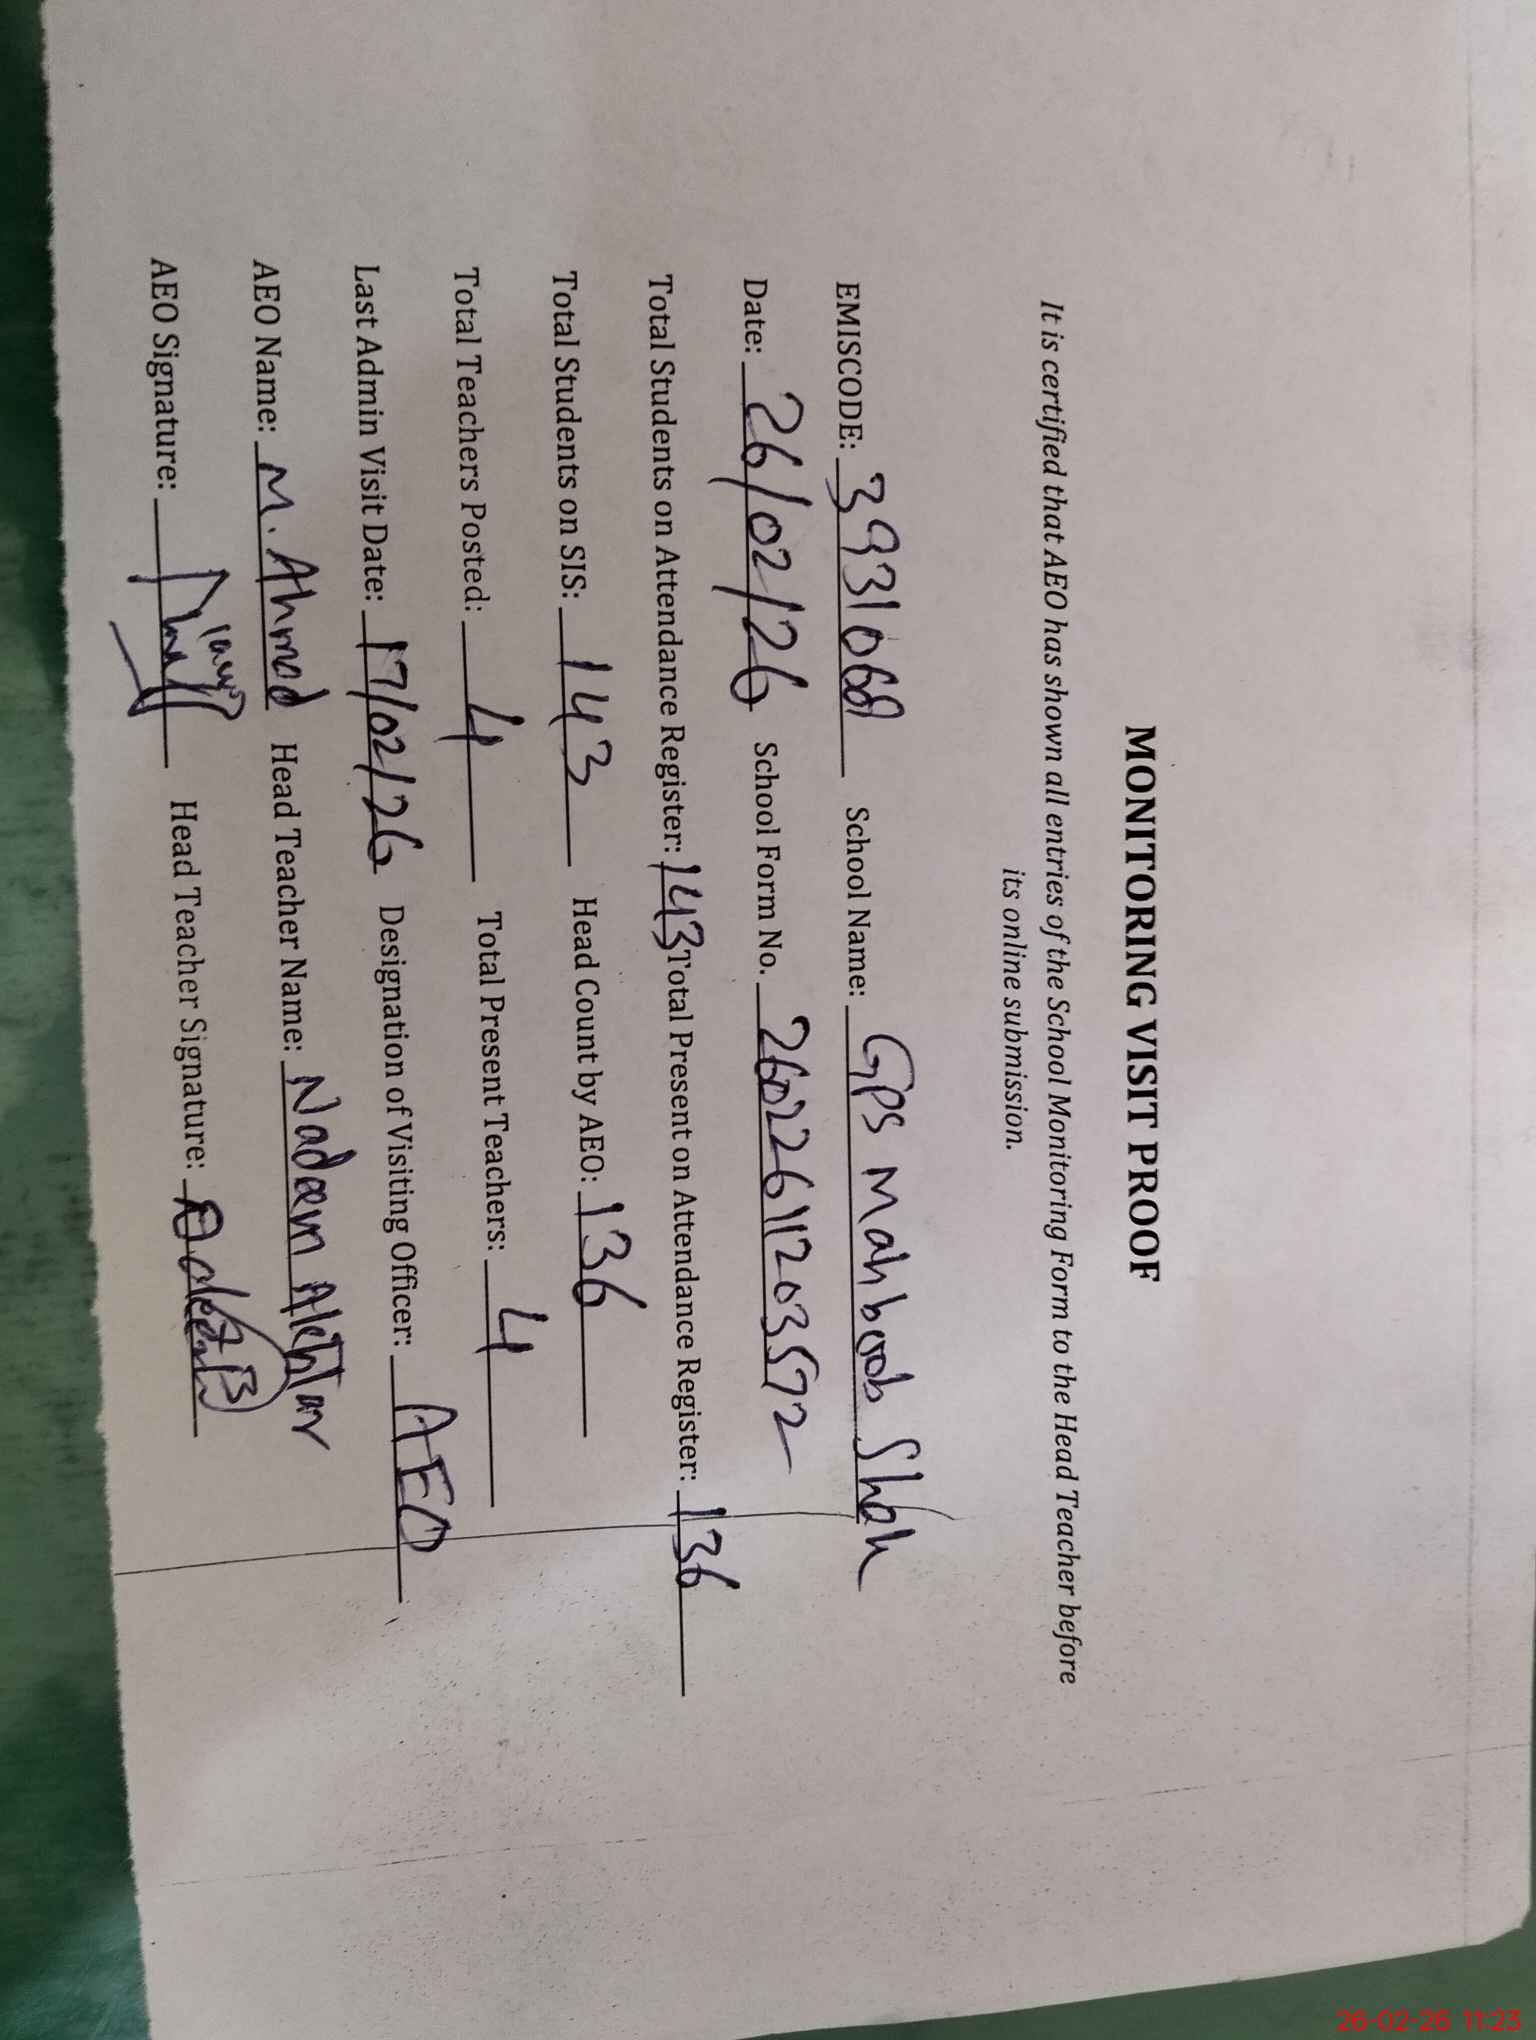 MONITORING VISIT PROOF
It is certified that AEO has shown all entries of the School Monitoring Form to the Head Teacher before
its online submission.
EMISCODE: 3931068 School Name: GPS Mahboob Shah
Date: 26/02/26 School Form No. 26022611203572
Total Students on Attendance Register: 143 Total Present on Attendance Register: 136
Total Students on SIS: 143 Head Count by AEO: 136
Total Teachers Posted: 4 Total Present Teachers: 4
Last Admin Visit Date: 17/02/26 Designation of Visiting Officer: AEO
AEO Name: M. Ahmad Head Teacher Name: Nadeem Akhtar
AEO Signature: Head Teacher Signature:
26-02-26 11:23